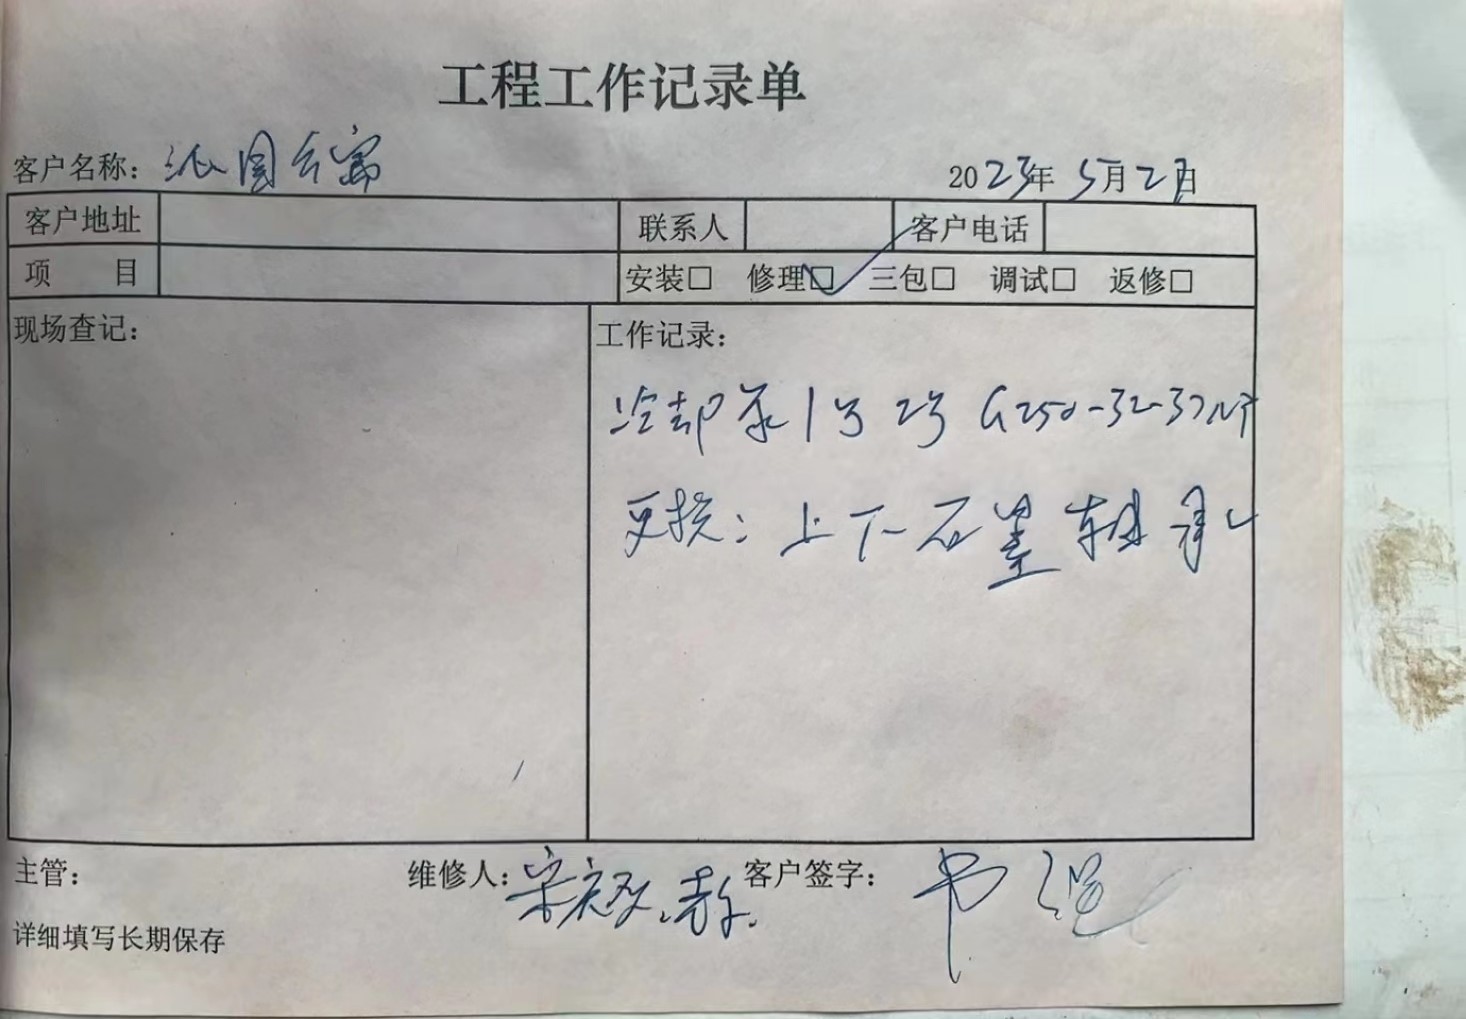 工程工作记录单
客户名称：沁园公寓 2023年5月2日
客户地址 联系人 客户电话
项目 安装□ 修理☑ 三包□ 调试□ 返修□
现场查记： 工作记录：
冷却泵1号 2号 G250-32-37
更换：上下石墨轴承
主管： 维修人：宋 客户签字：
详细填写长期保存